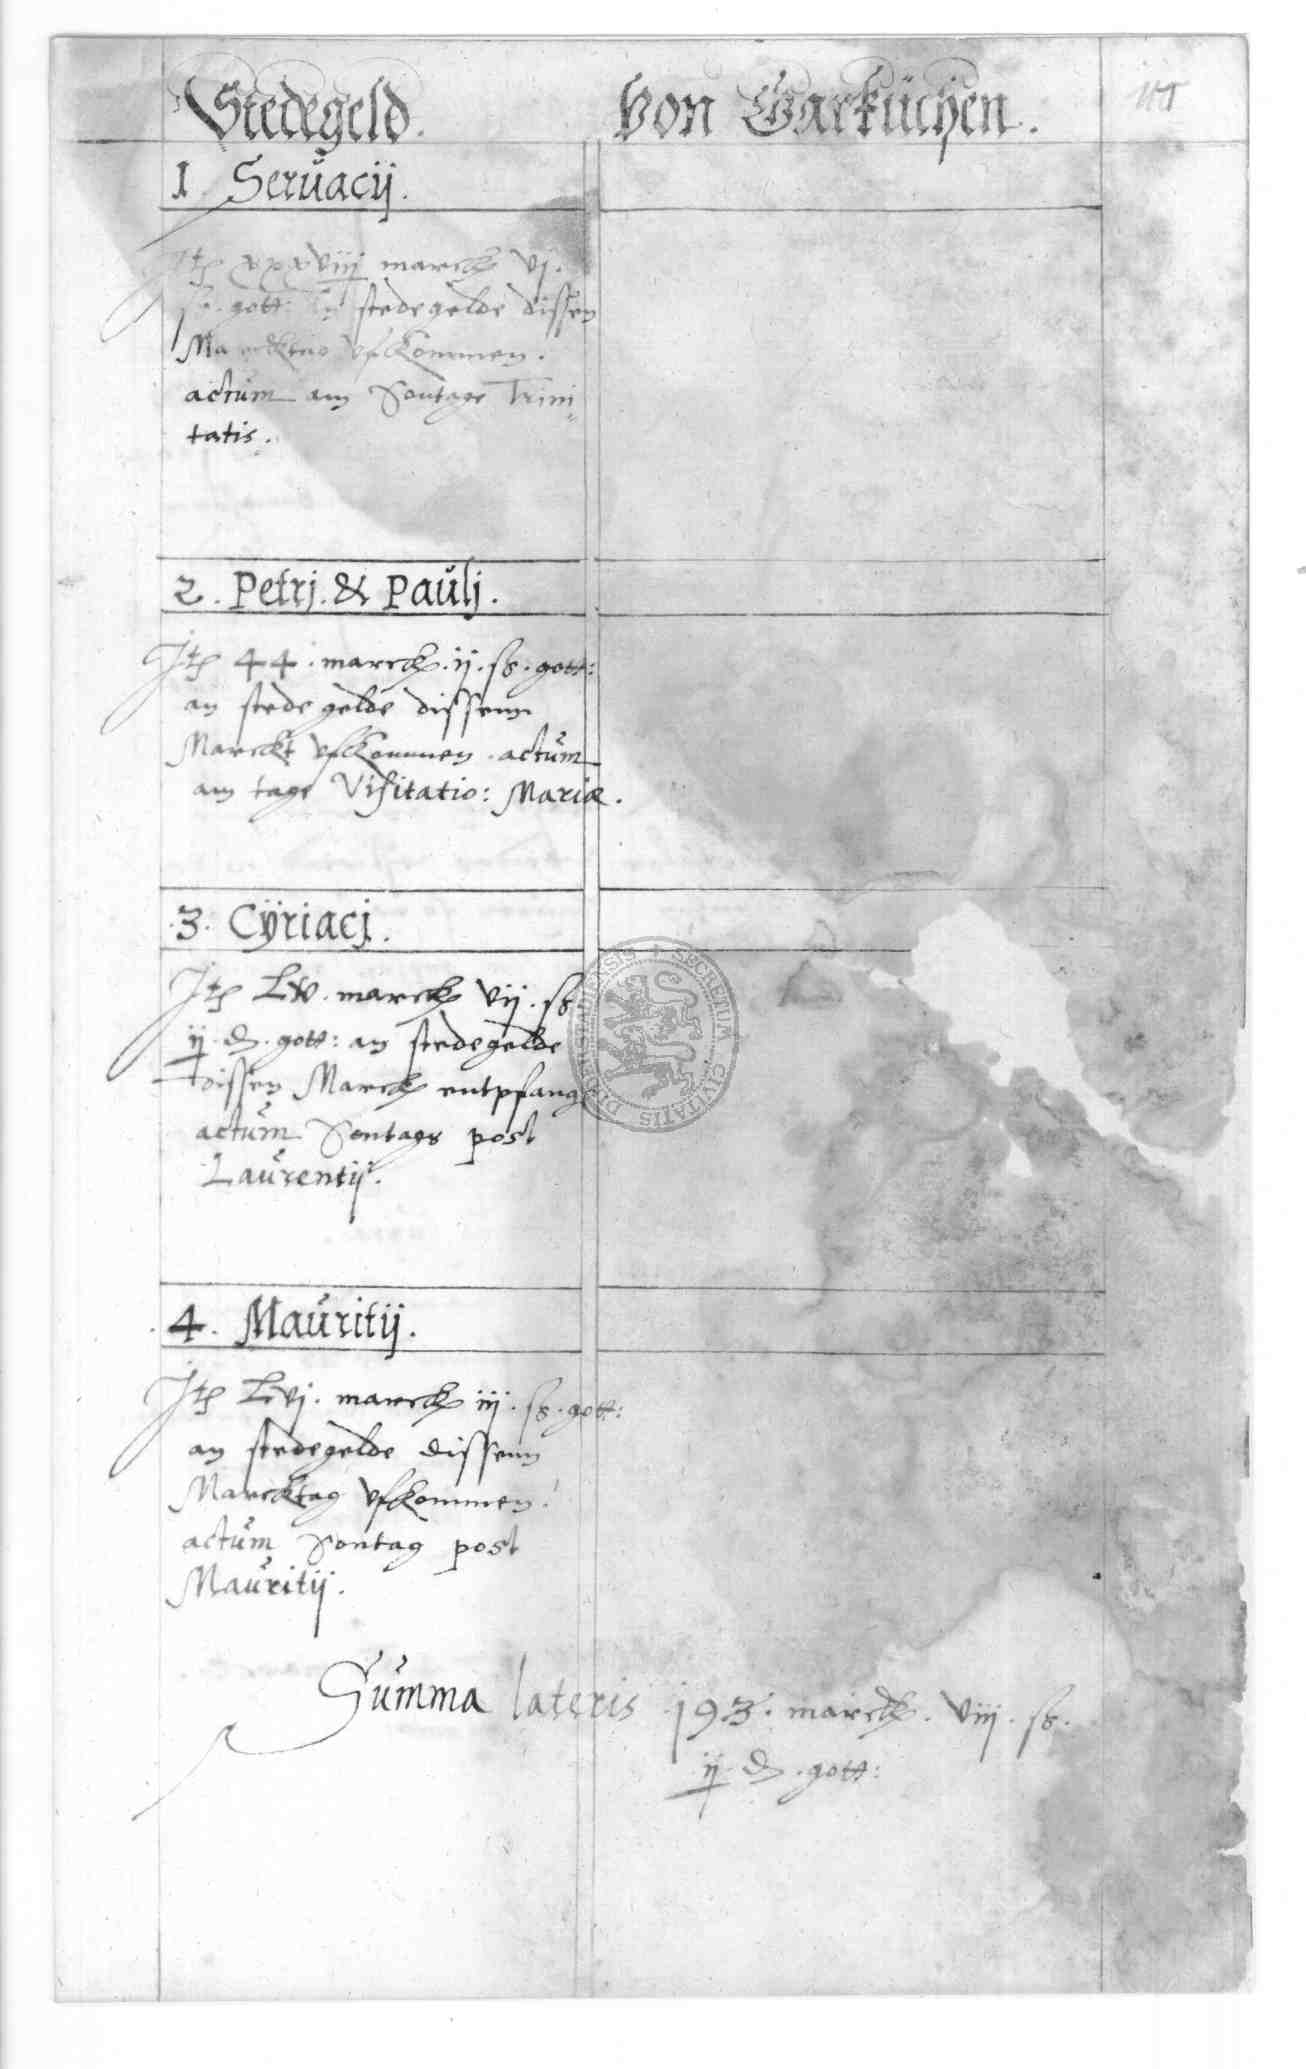 Stedegeld. Von Garküchen.
1. Servacij.
Itē xxxviij marck vj.
ß. gott: an stedegelde dissen
Marcktag vfkommen.
actum am Sontage Trini
tatis.
2. Petrj. & Paulj.
Itē 44. marck. ij. ß. gott:
an stede gelde dissenn
Marckt vfkommen. actum
am tage Visitatio: Mariæ.
3. Cÿriacj.
Itē Lv. marck vij. ß
ij. d. gott: an stedegelde
dissen Marck entpfang
actum Sontags post
Laurentij.
4. Mauritij.
Itē Lvj. marck iij. ß. gott:
an stedegelde dissenn
Marcktag vfkommen.
actum Sontag post
Mauritij.
Summa lateris 193. marck. viij. ß.
ij. d. gott:
SECRETUM CIVITATIS DUDERSTADIENSIS